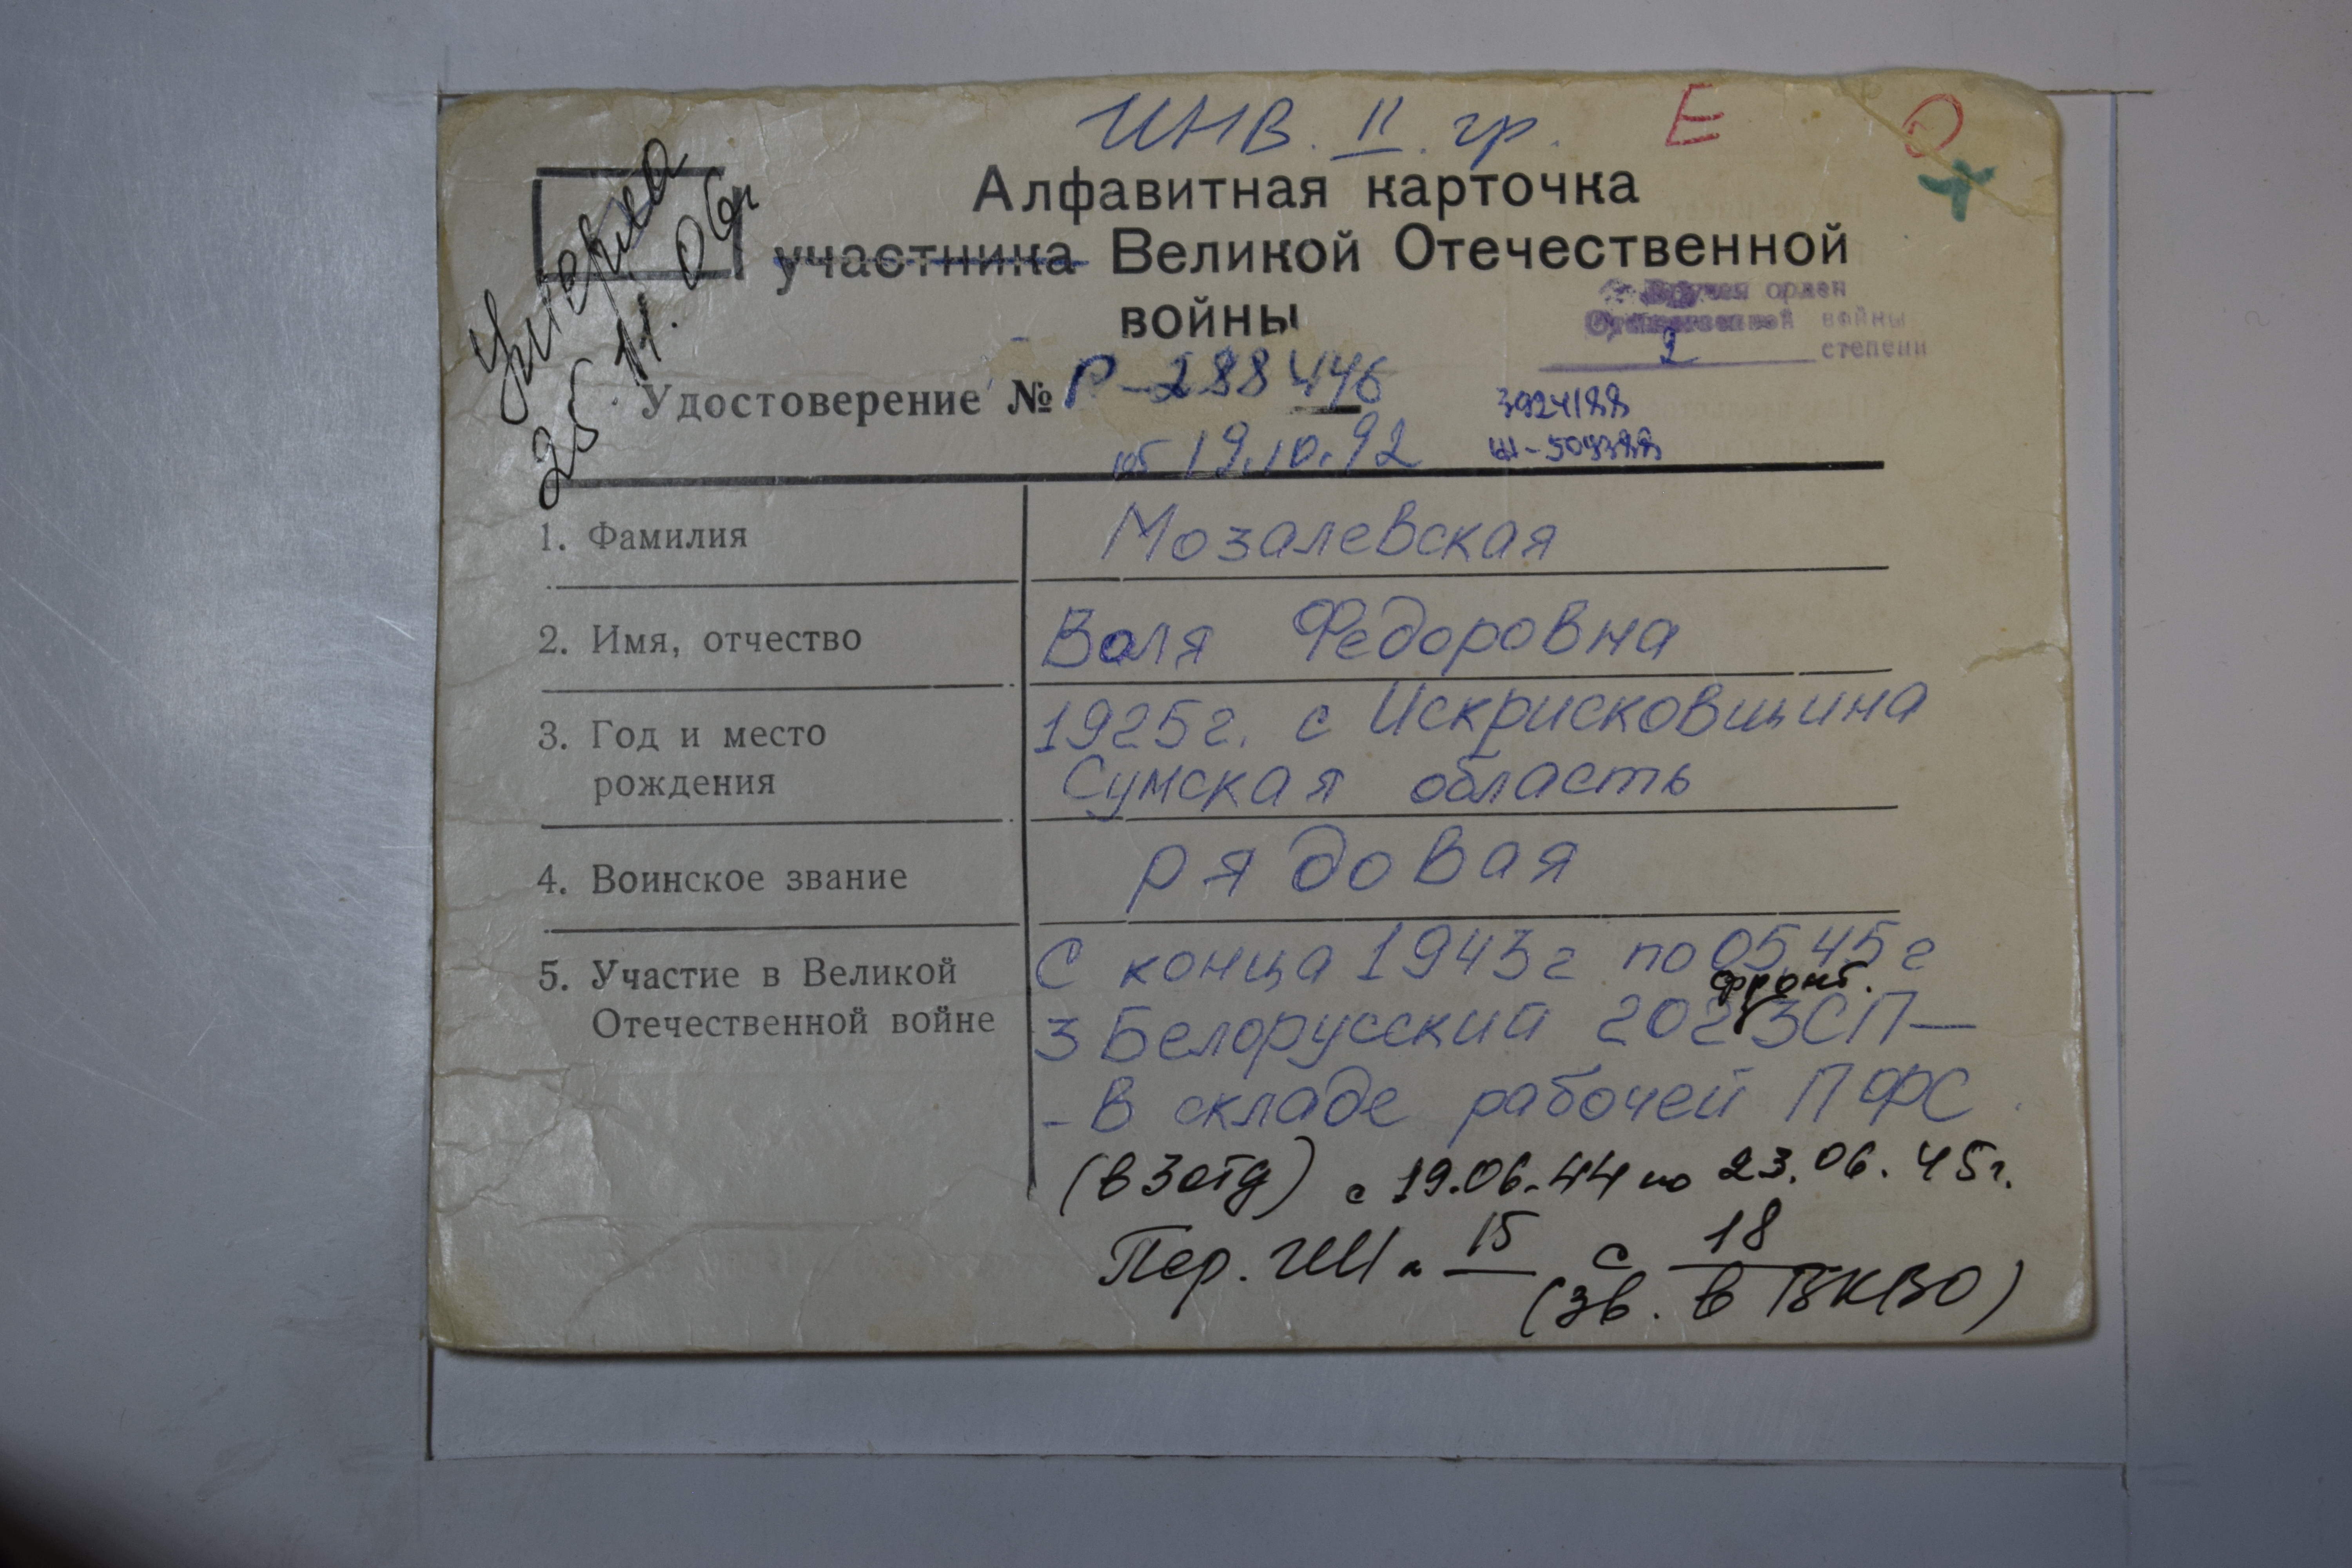 ИНВ. II. гр. Е О
Алфавитная карточка
участника Великой Отечественной
войны
Умерла
25.11.06г
Вручен орден
Отечественной войны
2 степени
Удостоверение № Р-288446
от 19.10.92
3924188
1. Фамилия Мозалевская
2. Имя, отчество Валя Федоровна
3. Год и место 1925г. с Искрисковщина
рождения Сумская область
4. Воинское звание рядовая
5. Участие в Великой С конца 1943г по 05.45г
фронт.
Отечественной войне 3 Белорусский 202 ЗСП-
-В складе рабочей ПФС
(в 3 отд) с 19.06.44 по 23.06.45г.
Пер. 15 с 18
(зв. в ВКВО)